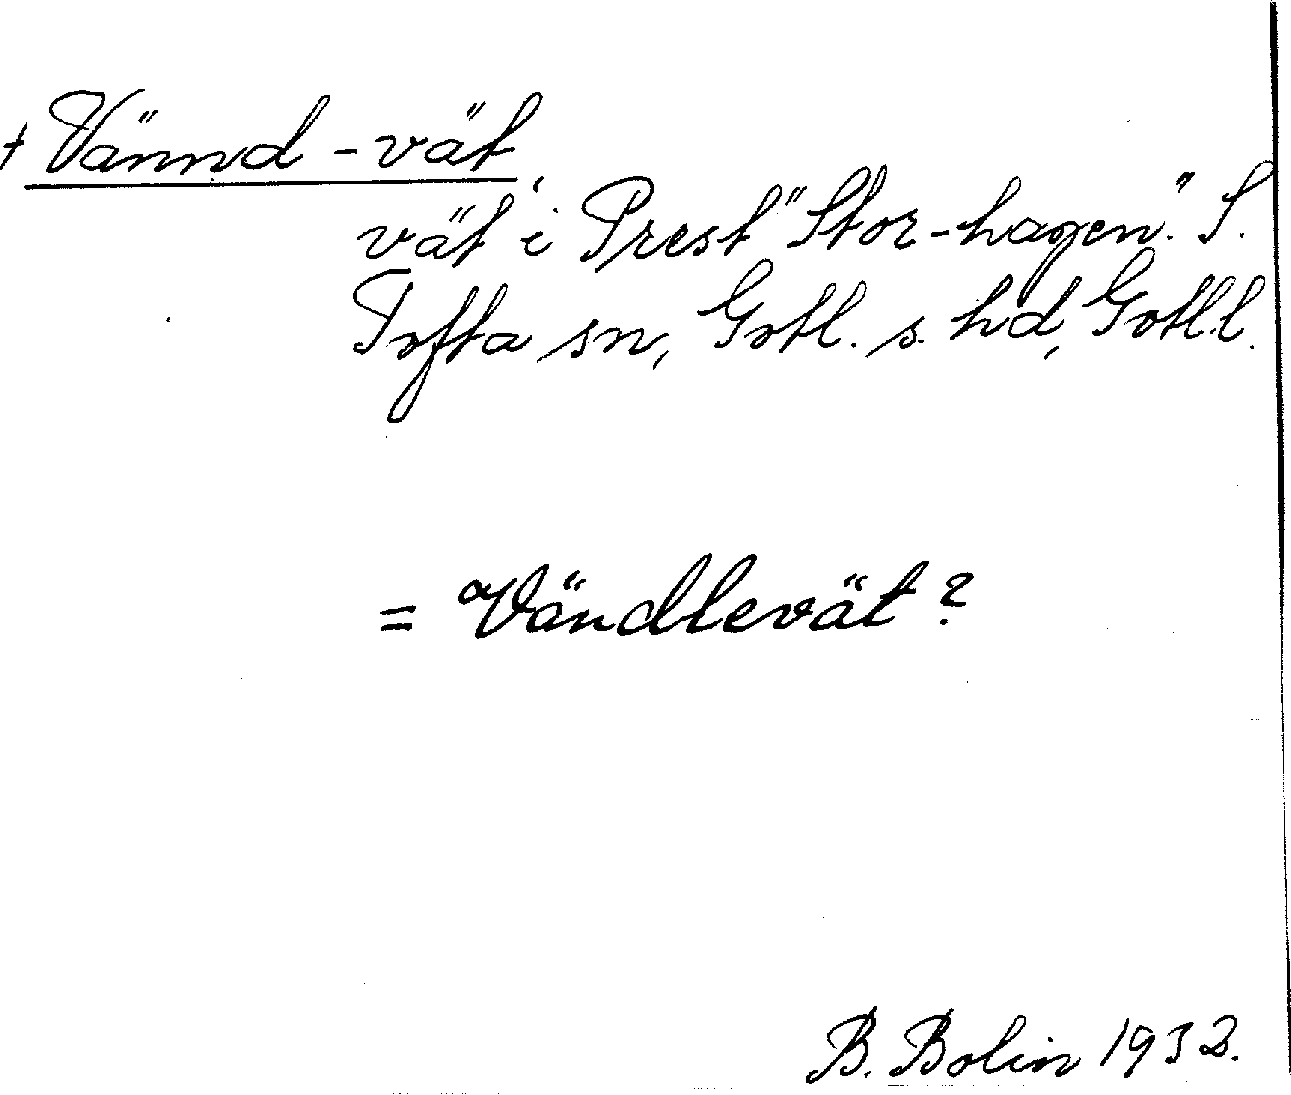 + Vännd-vät,
vät i Prest "Stor-hagen". S.
Tofta sn, Gotl. s. hd, Gotl.l.
= Vändlevät?
B. Bolin 1932.